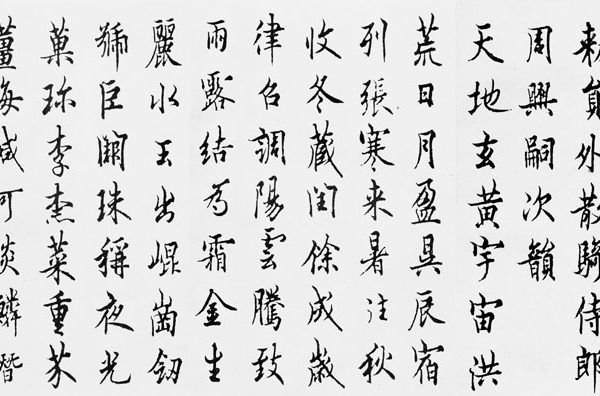 敕員外散騎侍郎
周興嗣次韻
天地玄黃宇宙洪
荒日月盈昃辰宿
列張寒来暑往秋
收冬藏閏餘成歲
律召調陽雲騰致
雨露結為霜金生
麗水玉出崐崗劒
號巨闕珠稱夜光
菓珍李柰菜重芥
薑海鹹河淡鱗潛